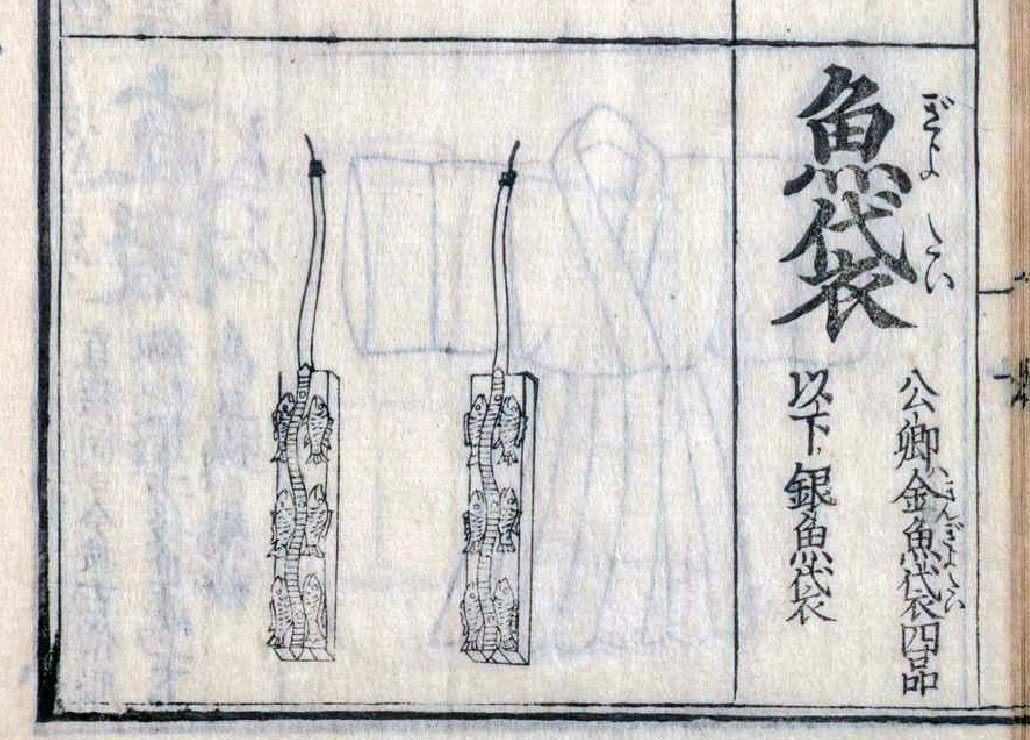 魚袋
ぎよたい
公卿金魚袋四品
きんぎよたい
以下銀魚袋